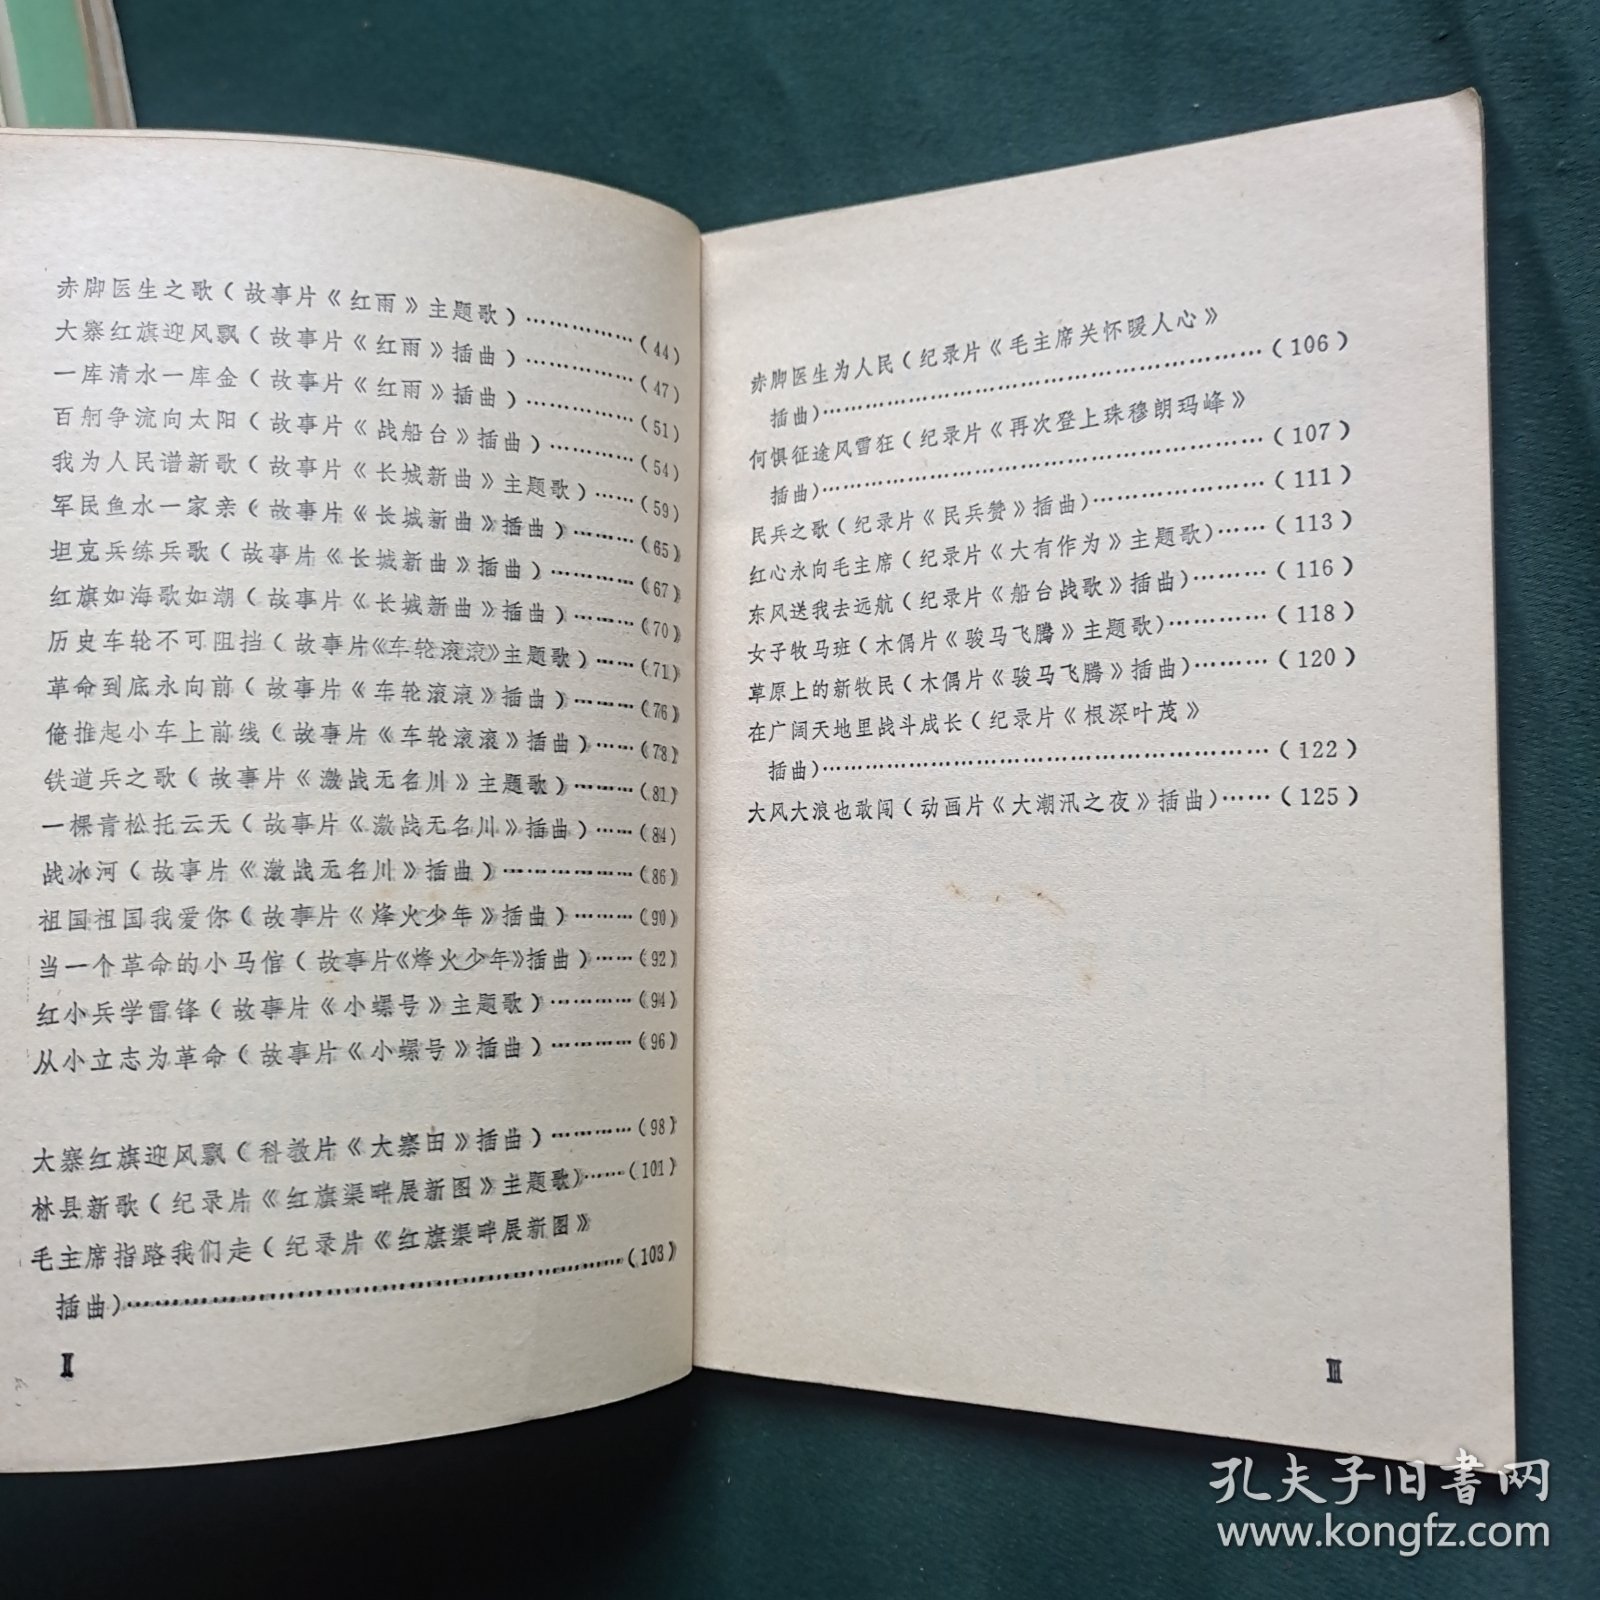 赤脚医生之歌(故事片《红雨》主题歌)……………(44)
大寨红旗迎风飘(故事片《红雨》插曲)……………(47)
一库清水一库金(故事片《红雨》插曲)……………(51)
百舸争流向太阳(故事片《战船台》插曲)…………(54)
我为人民谱新歌(故事片《长城新曲》主题歌)……(59)
军民鱼水一家亲(故事片《长城新曲》插曲)………(65)
坦克兵练兵歌(故事片《长城新曲》插曲)…………(67)
红旗如海歌如潮(故事片《长城新曲》插曲)………(70)
历史车轮不可阻挡(故事片《车轮滚滚》主题歌)……(71)
革命到底永向前(故事片《车轮滚滚》插曲)………(76)
俺推起小车上前线(故事片《车轮滚滚》插曲)……(78)
铁道兵之歌(故事片《激战无名川》主题歌)………(81)
一棵青松托云天(故事片《激战无名川》插曲)……(84)
战冰河(故事片《激战无名川》插曲)………………(86)
祖国祖国我爱你(故事片《烽火少年》插曲)………(90)
当一个革命的小马倌(故事片《烽火少年》插曲)……(92)
红小兵学雷锋(故事片《小螺号》主题歌)…………(94)
从小立志为革命(故事片《小螺号》插曲)…………(96)
大寨红旗迎风飘(科教片《大寨田》插曲)…………(98)
林县新歌(纪录片《红旗渠畔展新图》主题歌)……(101)
毛主席指路我们走(纪录片《红旗渠畔展新图》
插曲)……………………………………………………(103)
Ⅱ
赤脚医生为人民(纪录片《毛主席关怀暖人心》
插曲)……………………………………………………(106)
何惧征途风雪狂(纪录片《再次登上珠穆朗玛峰》
插曲)……………………………………………………(107)
民兵之歌(纪录片《民兵赞》插曲)…………………(111)
红心永向毛主席(纪录片《大有作为》主题歌)……(113)
东风送我去远航(纪录片《船台战歌》插曲)………(116)
女子牧马班(木偶片《骏马飞腾》主题歌)…………(118)
草原上的新牧民(木偶片《骏马飞腾》插曲)………(120)
在广阔天地里战斗成长(纪录片《根深叶茂》
插曲)……………………………………………………(122)
大风大浪也敢闯(动画片《大潮汛之夜》插曲)……(125)
Ⅲ
孔夫子旧书网
www.kongfz.com